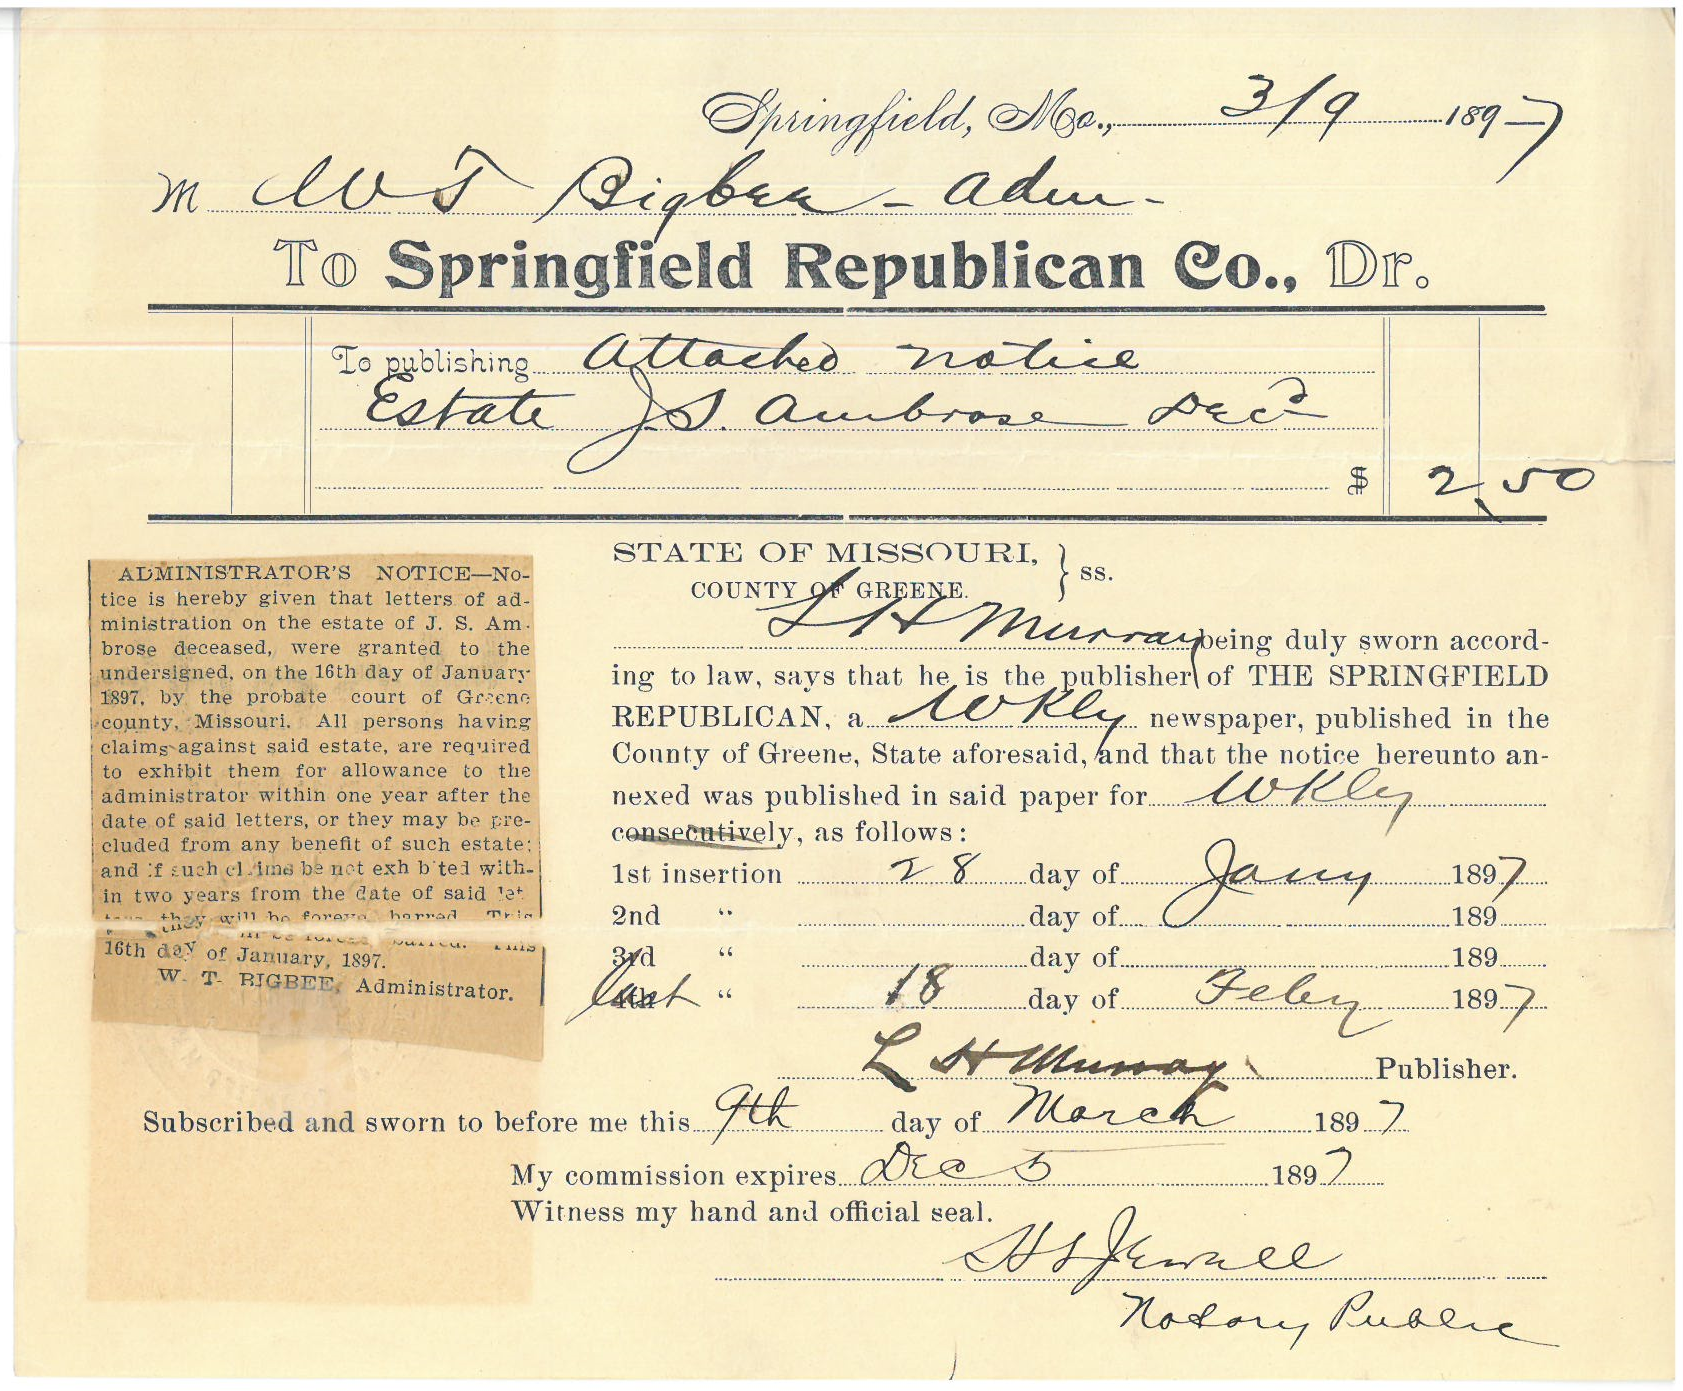 Springfield, Mo., 3/9 1897
M W T Bigbee - Adm -
To Springfield Republican Co., Dr.
To publishing Attached notice
Estate J.S. Ambrose Decd
$ 2.50
ADMINISTRATOR'S NOTICE—No-
tice is hereby given that letters of ad-
ministration on the estate of J. S. Am-
brose deceased, were granted to the
undersigned, on the 16th day of January
1897, by the probate court of Greene
county, Missouri. All persons having
claims against said estate, are required
to exhibit them for allowance to the
administrator within one year after the
date of said letters, or they may be pre-
cluded from any benefit of such estate;
and if such claims be not exhibited with-
in two years from the date of said let
they will be foreve barred. This
16th day of January, 1897.
W. T. BIGBEE, Administrator.
STATE OF MISSOURI, } ss.
COUNTY OF GREENE.
L H Murray being duly sworn accord-
ing to law, says that he is the publisher of THE SPRINGFIELD
REPUBLICAN, a Wkly newspaper, published in the
County of Greene, State aforesaid, and that the notice hereunto an-
nexed was published in said paper for Wkly
consecutively, as follows:
1st insertion 28 day of Jany 1897
2nd " day of 189
3rd " day of 189
last 4th " 18 day of Feby 1897
L H Murray Publisher.
Subscribed and sworn to before me this 9th day of March 1897
My commission expires Dec 5 1897
Witness my hand and official seal.
H S Jewell
Notary Public